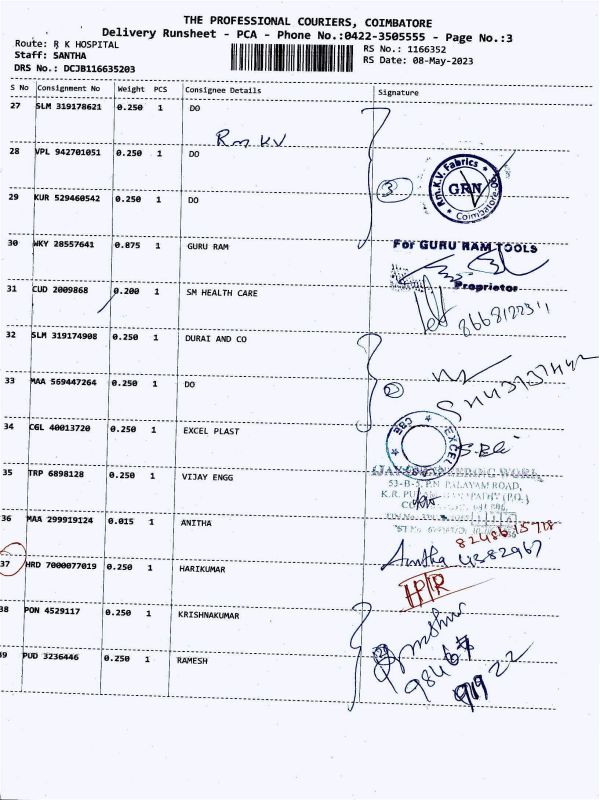 THE PROFESSIONAL COURIERS, COIMBATORE
Delivery Runsheet - PCA - Phone No.:0422-3505555 - Page No.:3
Route: R K HOSPITAL
RS No.: 1166352
Staff: SANTHA
RS Date: 08-May-2023
DRS No.: DCJB116635203
S No Consignment No Weight PCS Consignee Details Signature
27 SLM 319178621 0.250 1 DO
Rm KV
28 VPL 942701051 0.250 1 DO
Rm.K.V. Fabrics
GRN
Coimbatore
3
29 KUR 529460542 0.250 1 DO
30 WKY 28557641 0.875 1 GURU RAM
For GURU RAM TOOLS
Proprietor
31 CUD 2009868 0.200 1 SM HEALTH CARE
32 SLM 319174908 0.250 1 DURAI AND CO
33 MAA 569447264 0.250 1 DO
2
34 CGL 40013720 0.250 1 EXCEL PLAST
CBE
EXCEL
35 TRP 6898128 0.250 1 VIJAY ENGG
PALAYAM ROAD,
36 MAA 299919124 0.015 1 ANITHA
Anitha
37 HRD 7000077019 0.250 1 HARIKUMAR
38 PON 4529117 0.250 1 KRISHNAKUMAR
39 PUD 3236446 0.250 1 RAMESH